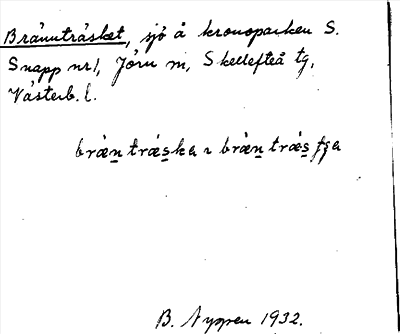 Brännträsket, sjö å kronoparken S.
Snapp nr 1, Jörn sn, Skellefteå tg,
Västerb. l.
bræ̀n træ̀ska ~ bræ̀n træ̀s
B. Nyppen 1932.